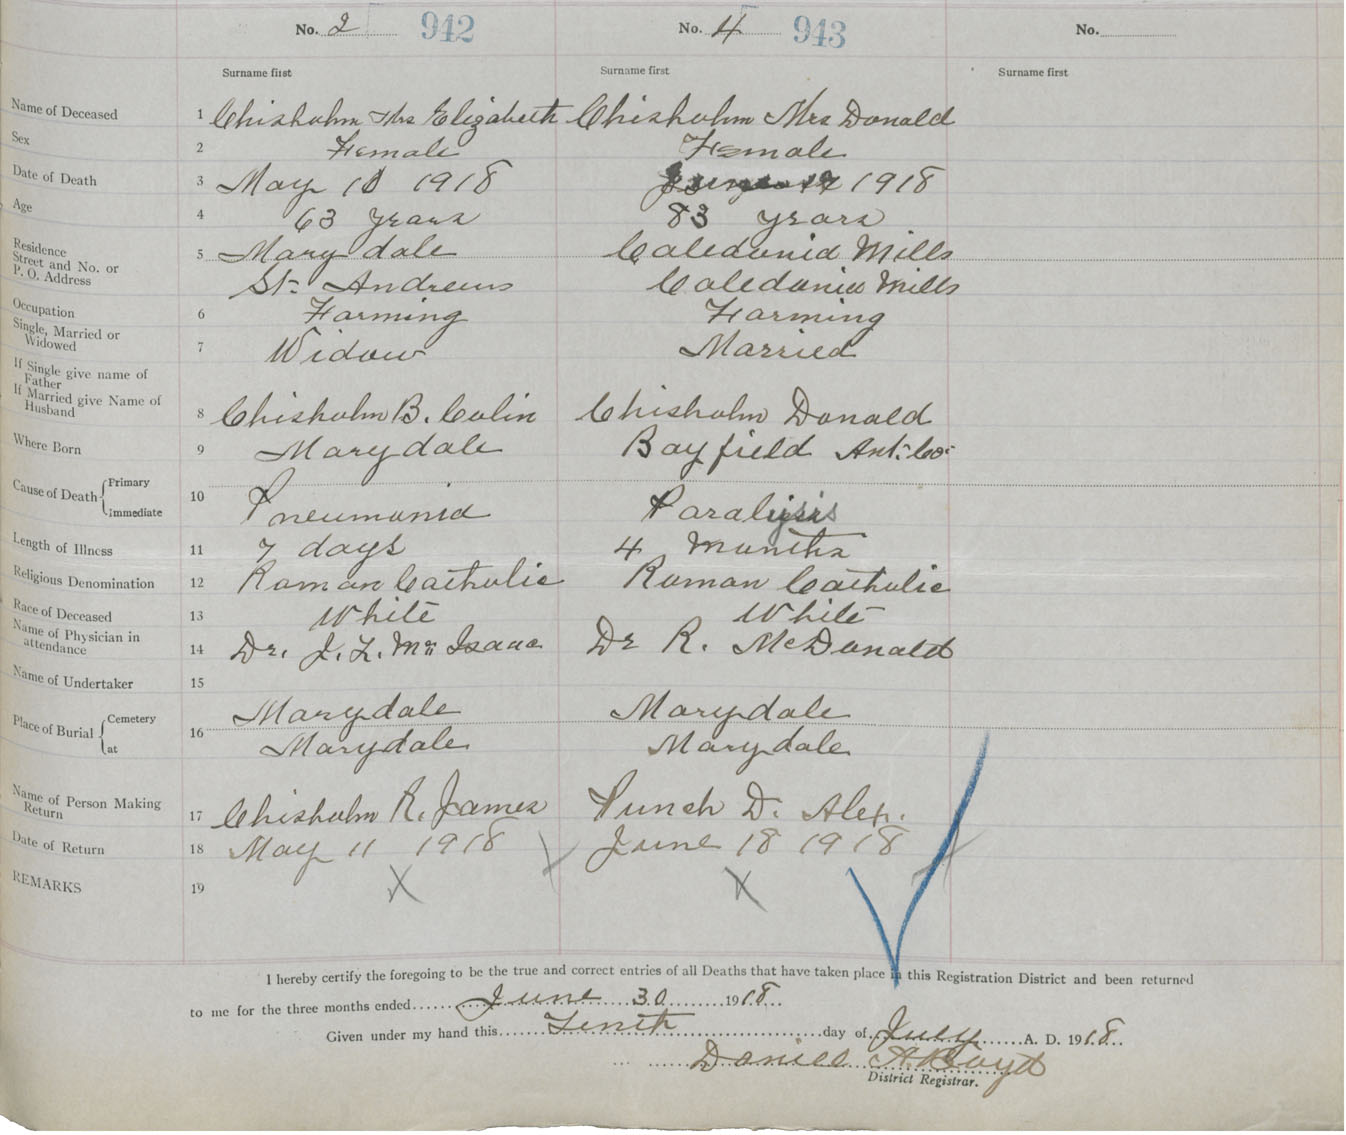 No. 2 942 No. 4 943 No.
Surname first Surname first Surname first
Name of Deceased 1 Chisholm Mrs Elizabeth Chisholm Mrs Donald
Sex 2 Female Female
Date of Death 3 May 10 1918 June 17 1918
Age 4 63 years 83 years
Residence
Street and No. or 5 Marydale Caledonia Mills
P. O. Address St. Andrews Caledonia Mills
Occupation 6 Farming Farming
Single, Married or
Widowed 7 Widow Married
If Single give name of
Father
If Married give Name of
Husband 8 Chisholm B. Colin Chisholm Donald
Where Born 9 Marydale Bayfield Ant. Co.
Cause of Death Primary
Immediate 10 Pneumonia Paralysis
Length of Illness 11 7 days 4 Months
Religious Denomination 12 Roman Catholic Roman Catholic
Race of Deceased 13 White White
Name of Physician in
attendance 14 Dr. J. L. Mc Isaac Dr R. McDonald
Name of Undertaker 15
Place of Burial Cemetery 16 Marydale Marydale
at Marydale Marydale
Name of Person Making
Return 17 Chisholm R. James Punch D. Alex.
Date of Return 18 May 11 1918 June 18 1918
REMARKS 19 X X
I hereby certify the foregoing to be the true and correct entries of all Deaths that have taken place in this Registration District and been returned
to me for the three months ended June 30 1918
Given under my hand this Tenth day of July A. D. 1918
Daniel A. Boyd
District Registrar.